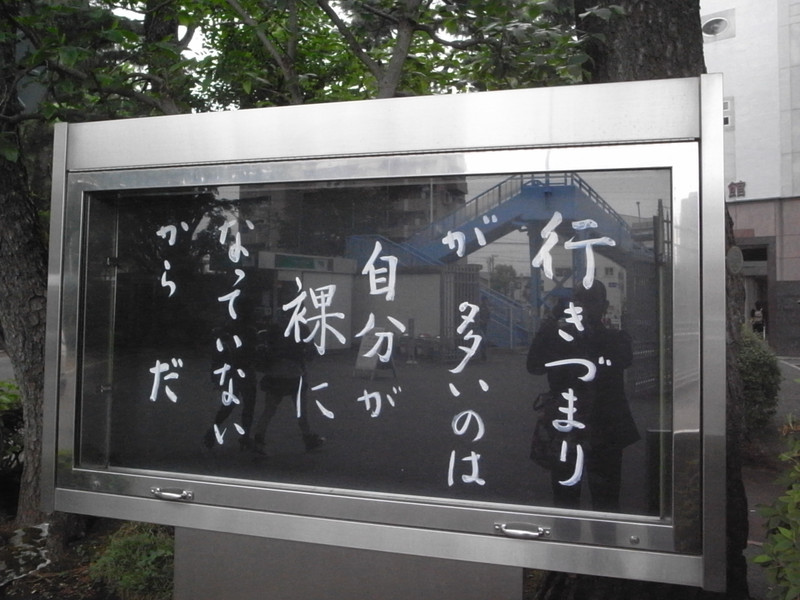 行きづまり
が 多いのは
自分が
裸に
なっていない
から だ
館